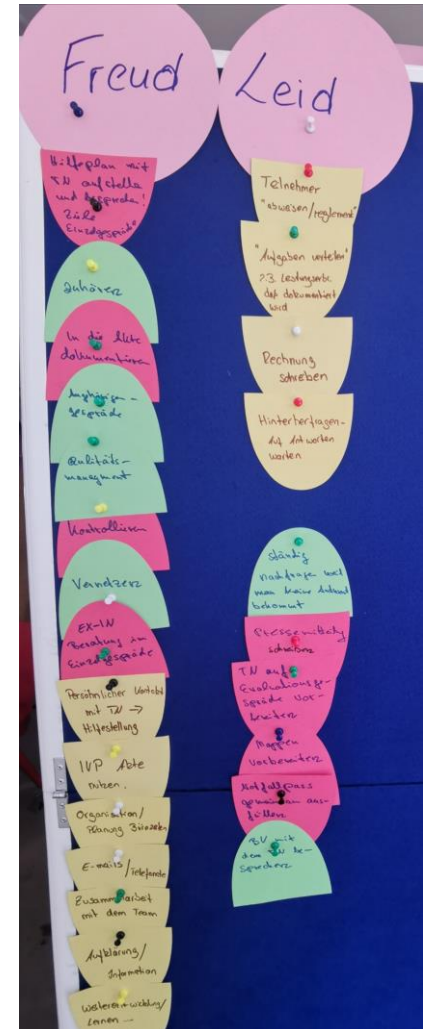 Freud
Hilfeplan mit
TN aufstellen
und besprechen!
Ziele
Einzelgespräch"
zuhören
In die Akte
dokumentieren
Angehörigen-
gespräche
Qualitäts-
managment
Kontrollieren
Vernetzen
EX-IN
Beratung im
Einzelgespräche
Persönlicher
mit TN →
Hilfestellung
IVP Akte
nutzen.
Organisation/
Planung
E-mails/Telefonate
Zusammenarbeit
mit dem Team
Aufklärung/
Information
Weiterentwicklung/
Lernen →
Leid
Teilnehmer
"abweisen/reglement"
"Aufgaben verteilen"
z.B.
dass dokumentiert
wird
Rechnung
schreiben
Hinterherfragen-
Auf Antworten
warten
ständig
nachfragen weil
man keine Antwort
bekommt
schreiben
TN auf
Evaluationsge-
spräche vor-
bereiten
Mappen
vorbereiten
Notfallpass
gemeinsam aus-
füllen
BV mit
dem TN be-
sprechen